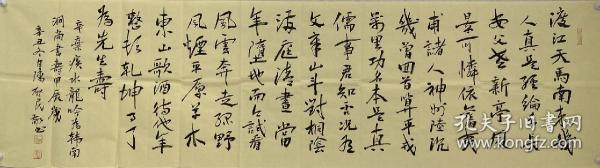 渡江天马南来幾
人真是經綸手長
安父老新亭風
景可憐依舊夷
甫諸人神州陸沉
幾曾回首算平戎
萬里功名本是真
儒事君知否況有
文章山斗對桐陰
滿庭清晝當
年墮地而今試看
風雲奔走綠野
風煙平原草木
東山歌酒待他年
整頓乾坤事了
為先生壽
辛棄疾水龍吟為韓南
澗尚書壽甲辰歲
辛丑冬月 民 書
孔夫子旧书网